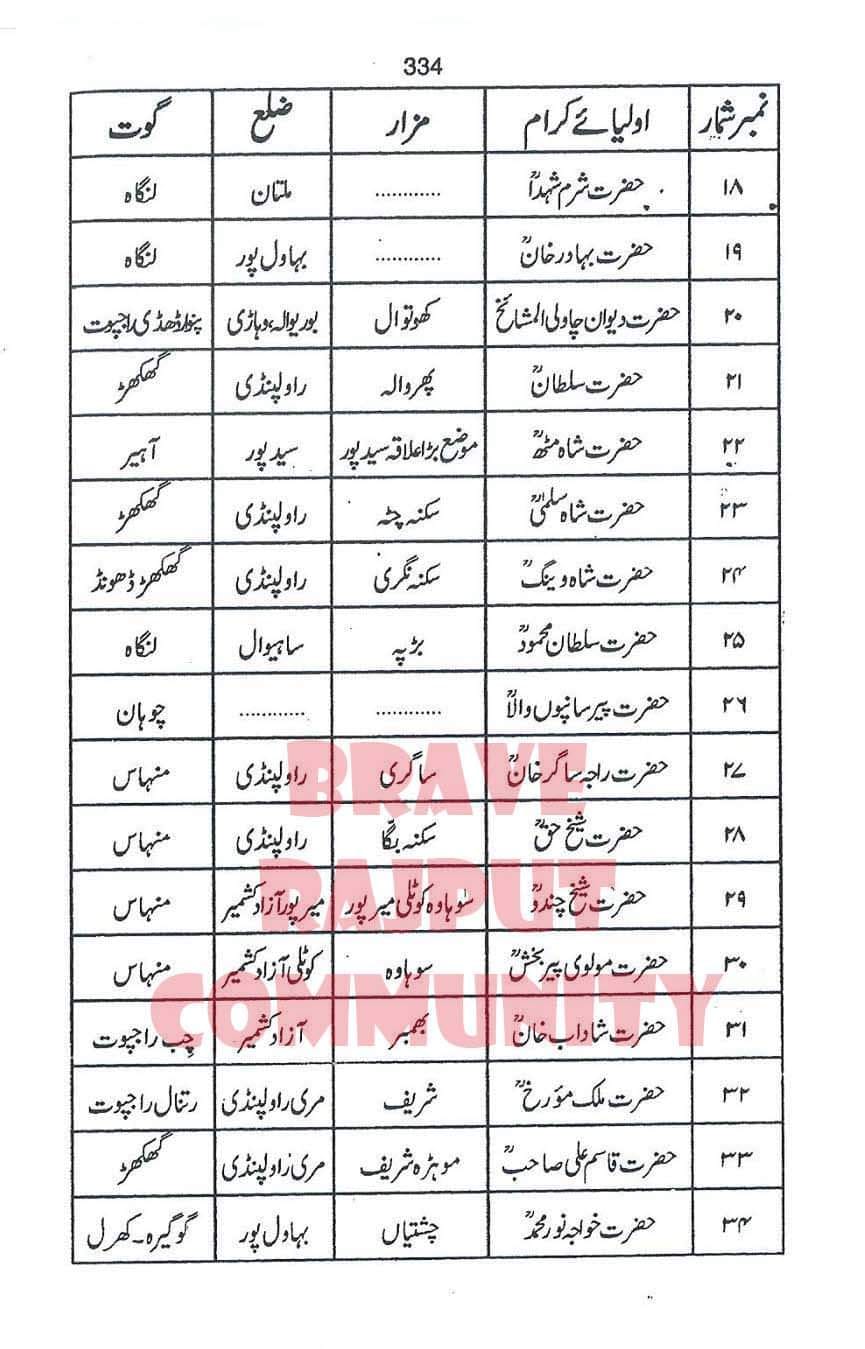 334
نمبر شمار اولیائے کرام مزار ضلع گوت
۱۸ حضرت شرم شہداؒ ............ ملتان لنگاہ
۱۹ حضرت بہادر خانؒ ............ بہاول پور لنگاہ
۲۰ حضرت دیوان چاولی المشائخؒ کھوتوال بوریوالہ، وہاڑی پنوار ڈھڈی راجپوت
۲۱ حضرت سلطانؒ پھروالہ راولپنڈی گھکھڑ
۲۲ حضرت شاہ مٹھؒ موضع بڑا علاقہ سید پور سید پور آہیر
۲۳ حضرت شاہ سلمیؒ سکنہ چٹہ راولپنڈی گھکھڑ
۲۴ حضرت شاہ وینگؒ سکنہ نگری راولپنڈی گھکھڑ ڈھونڈ
۲۵ حضرت سلطان محمودؒ بڑپہ ساہیوال لنگاہ
۲۶ حضرت پیر سانپوں والاؒ ............ ............ چوہان
۲۷ حضرت راجہ ساگر خانؒ ساگری راولپنڈی منہاس
۲۸ حضرت شیخ حقؒ سکنہ بگا راولپنڈی منہاس
۲۹ حضرت شیخ چندوؒ سوہاوہ کوٹلی میرپور میرپور آزاد کشمیر منہاس
۳۰ حضرت مولوی پیر بخشؒ سوہاوہ کوٹلی آزاد کشمیر منہاس
۳۱ حضرت شاداب خانؒ بھمبر آزاد کشمیر چب راجپوت
۳۲ حضرت ملک مؤرخؒ شریف مری راولپنڈی رتنال راجپوت
۳۳ حضرت قاسم علی صاحبؒ موہڑہ شریف مری راولپنڈی گھکھڑ
۳۴ حضرت خواجہ نور محمدؒ چشتیاں بہاول پور گوگیرہ۔کھرل
BRAVE
RAJPUT
COMMUNITY